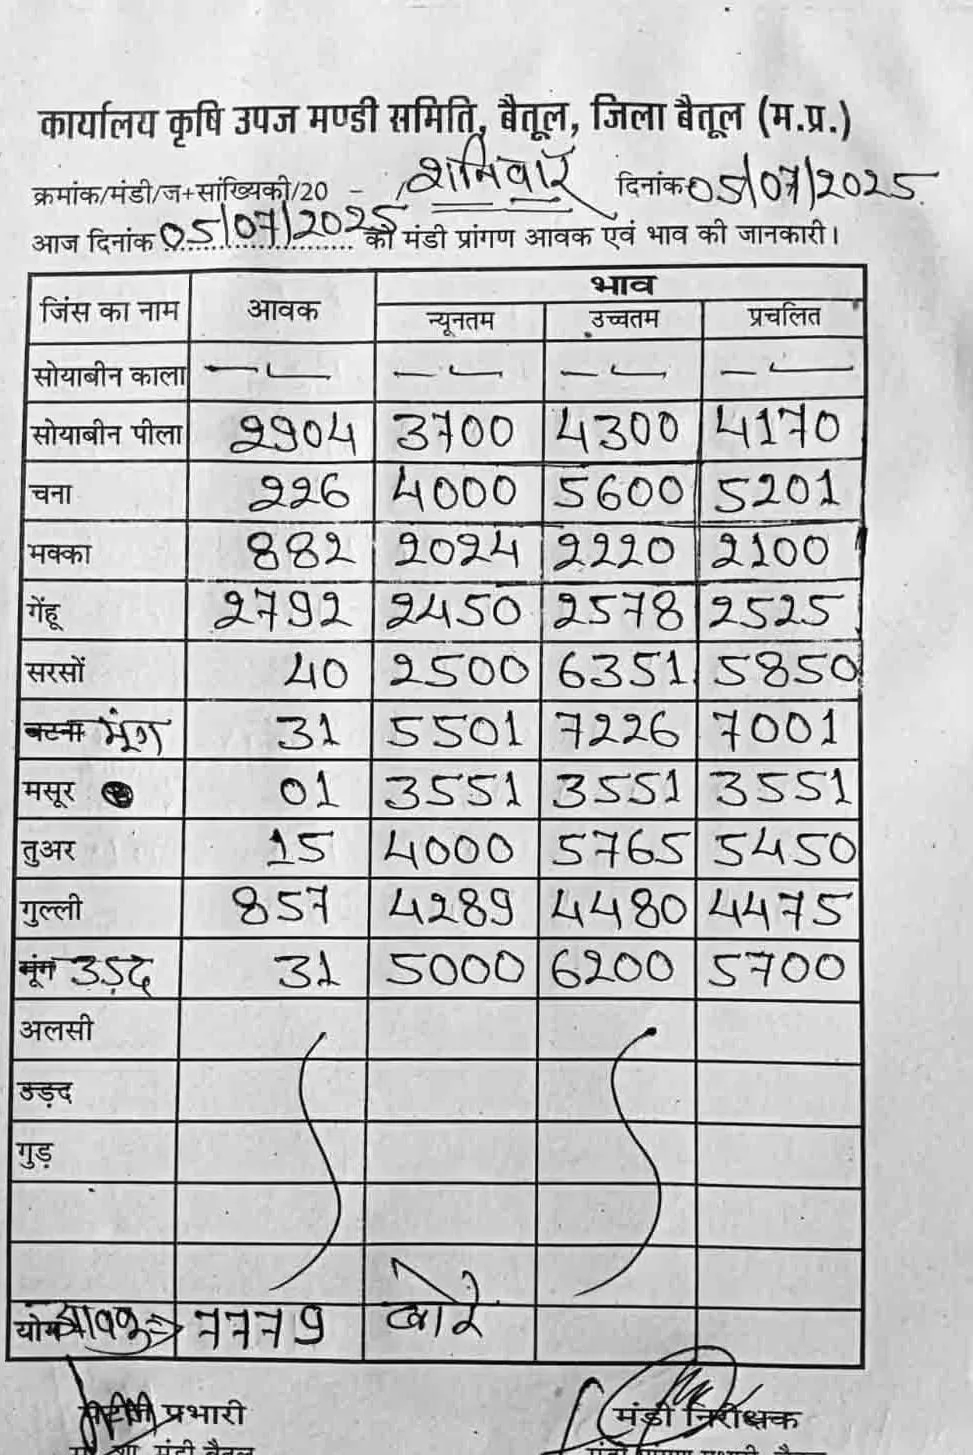 कार्यालय कृषि उपज मण्डी समिति, बैतूल, जिला बैतूल (म.प्र.)
क्रमांक/मंडी/ज+सांख्यिकी/20 - शनिवार दिनांक 05/07/2025
आज दिनांक 05/07/2025 को मंडी प्रांगण आवक एवं भाव की जानकारी।
जिंस का नाम आवक भाव
न्यूनतम उच्चतम प्रचलित
सोयाबीन काला — — — — — — — —
सोयाबीन पीला 2904 3700 4300 4170
चना 226 4000 5600 5201
मक्का 882 2024 2220 2100
गेंहू 2792 2450 2578 2525
सरसों 40 2500 6351 5850
बटना मूंग 31 5501 7226 7001
मसूर 01 3551 3551 3551
तुअर 15 4000 5765 5450
गुल्ली 857 4289 4480 4475
मूंग उड़द 31 5000 6200 5700
अलसी
उड़द
गुड़
योग आवक => 7779 बोरे
प्रभारी मंडी निरीक्षक
मंडी बैतूल